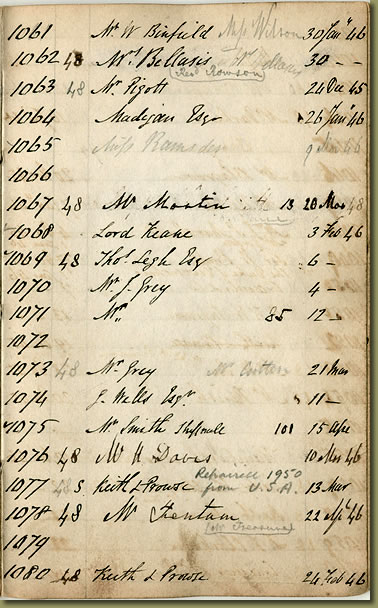 1061 Mr W Binfield Miss Wilson 30 Jany 46
1062 48 Mrs Bellasis 30 – –
Revd Rowson
1063 48 Mr Pigott 24 Dec 45
1064 Madigan Esqr 26 Jany 46
1065 Miss Ramsden 9
1066
1067 48 Mr Martin 13 28 Mar 48
1068 Lord Keane 3 Feb 46
1069 48 Thos. Legh Esq 6 –
1070 Mr J. Grey 4 –
1071 Mr 85 12 –
1072
1073 48 Mr Grey Mr 21 Mar
1074 J. Wells Esqr. 11 –
1075 Mr Smith 101 15 Apl
1076 48 Mr H Davis 10 Mar 46
Repaired 1950
1077 48 S Keith & Prowse from U.S.A. 13 Mar
1078 48 Mr Fentam 22 Apl 46
1079
1080 48 Keith & Prowse 24 Feb 46